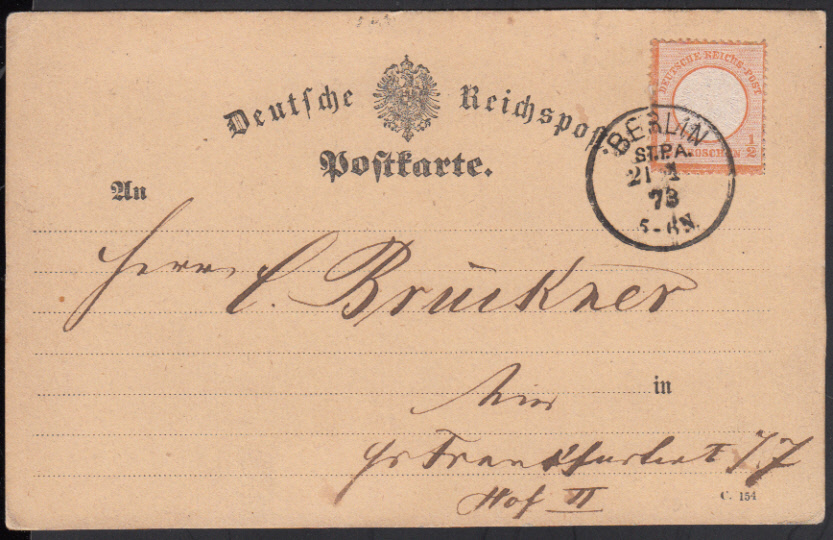 Deutsche Reichspost
Postkarte.
DEUTSCHE REICHS-POST
GROSCHEN 1/2
BERLIN
ST.P.A.
21
73
5-6 N.
An
Herrn C. Brückner
in
hier
gr Frankfurter 77
Hof II
C. 154